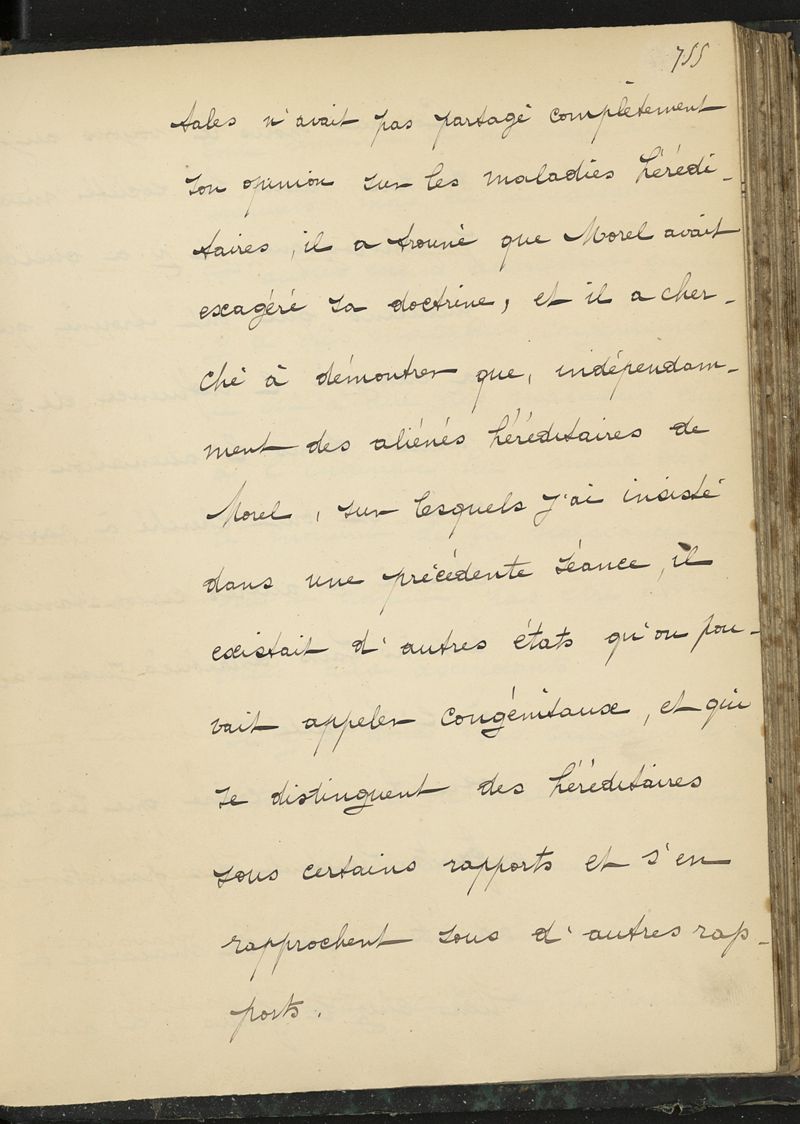 755
tales n'avait pas partagé complètement
son opinion sur les maladies hérédi-
taires, il a trouvé que Morel avait
exagéré sa doctrine, et il a cher-
ché à démontrer que, indépendam-
ment des aliénés héréditaires de
Morel, sur lesquels j'ai insisté
dans une précédente séance, il
existait d'autres états qu'on pou-
vait appeler congénitaux, et qui
se distinguent des héréditaires
sous certains rapports et s'en
rapprochent sous d'autres rap-
ports.